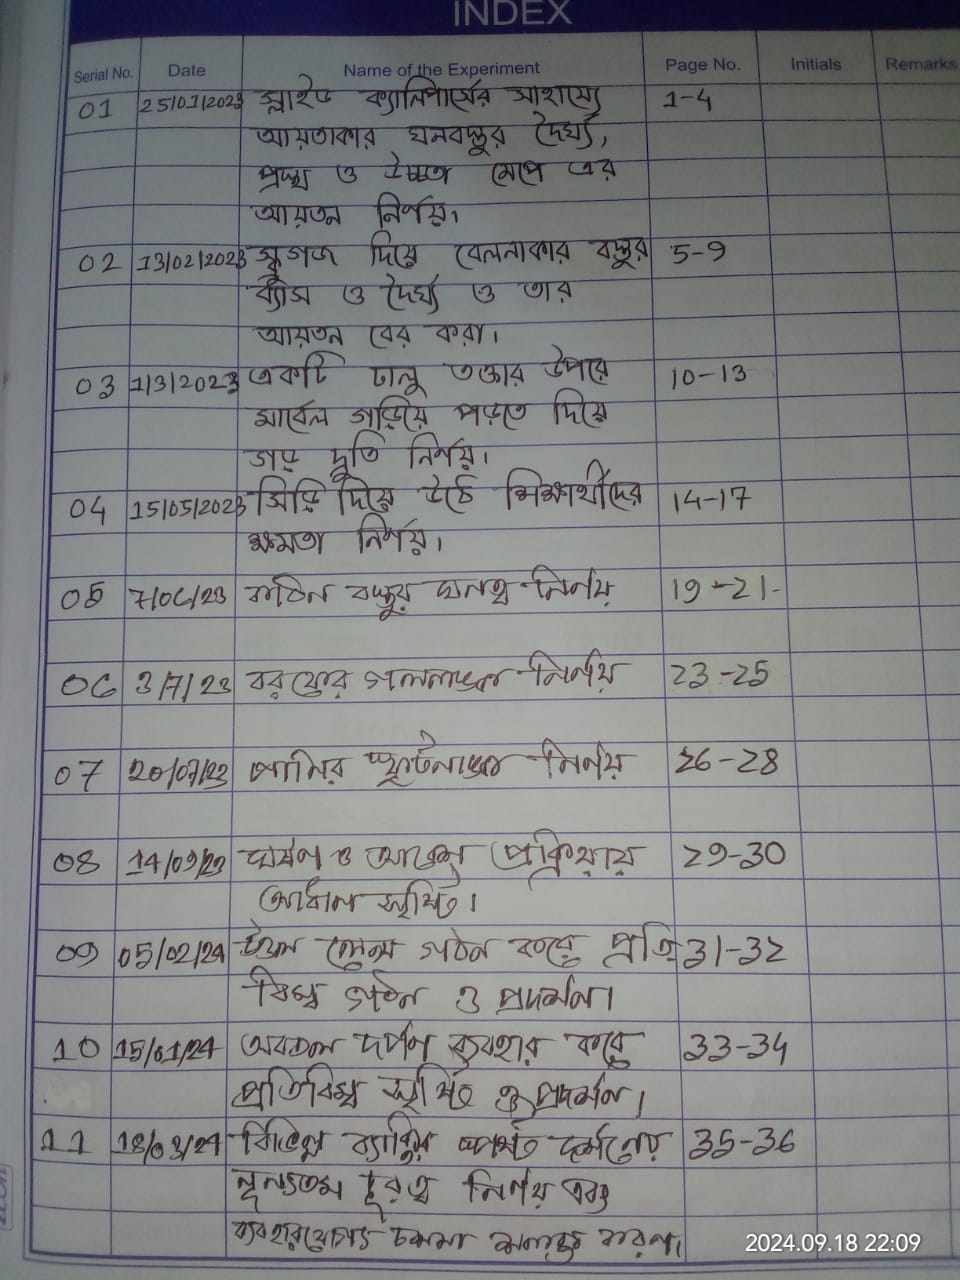 INDEX
Serial No. Date Name of the Experiment Page No. Initials Remarks
01 25/01/2023 স্লাইড ক্যালিপার্সের সাহায্যে 1-4
আয়তাকার ঘনবস্তুর দৈর্ঘ্য,
প্রস্থ ও উচ্চতা মেপে এর
আয়তন নির্ণয়।
02 13/02/2023 স্ক্রুগজ দিয়ে বেলনাকার বস্তুর 5-9
ব্যাস ও দৈর্ঘ্য ও তার
আয়তন বের করা।
03 1/3/2023 একটি ঢালু তক্তার উপরে 10-13
মার্বেল গড়িয়ে পড়তে দিয়ে
গড় দ্রুতি নির্ণয়।
04 15/05/2023 সিঁড়ি দিয়ে উঠে শিক্ষার্থীদের 14-17
ক্ষমতা নির্ণয়।
05 7/06/23 কঠিন বস্তুর ঘনত্ব নির্ণয় 19-21
06 3/7/23 বরফের গলনাঙ্ক নির্ণয় 23-25
07 20/07/23 পানির স্ফুটনাঙ্ক নির্ণয় 26-28
08 14/09/23 ঘর্ষণ ও আবেশ প্রক্রিয়ায় 29-30
আধান সৃষ্টি।
09 05/02/24 উত্তল লেন্স গঠন করে প্রতি 31-32
বিম্ব গঠন ও প্রদর্শন।
10 15/01/24 অবতল দর্পণ ব্যবহার করে 33-34
প্রতিবিম্ব সৃষ্টি ও প্রদর্শন।
11 18/03/24 বিভিন্ন ব্যক্তির স্পষ্ট দর্শনের 35-36
নূন্যতম দূরত্ব নির্ণয় এবং
ব্যবহারযোগ্য চশমা
2024.09.18 22:09